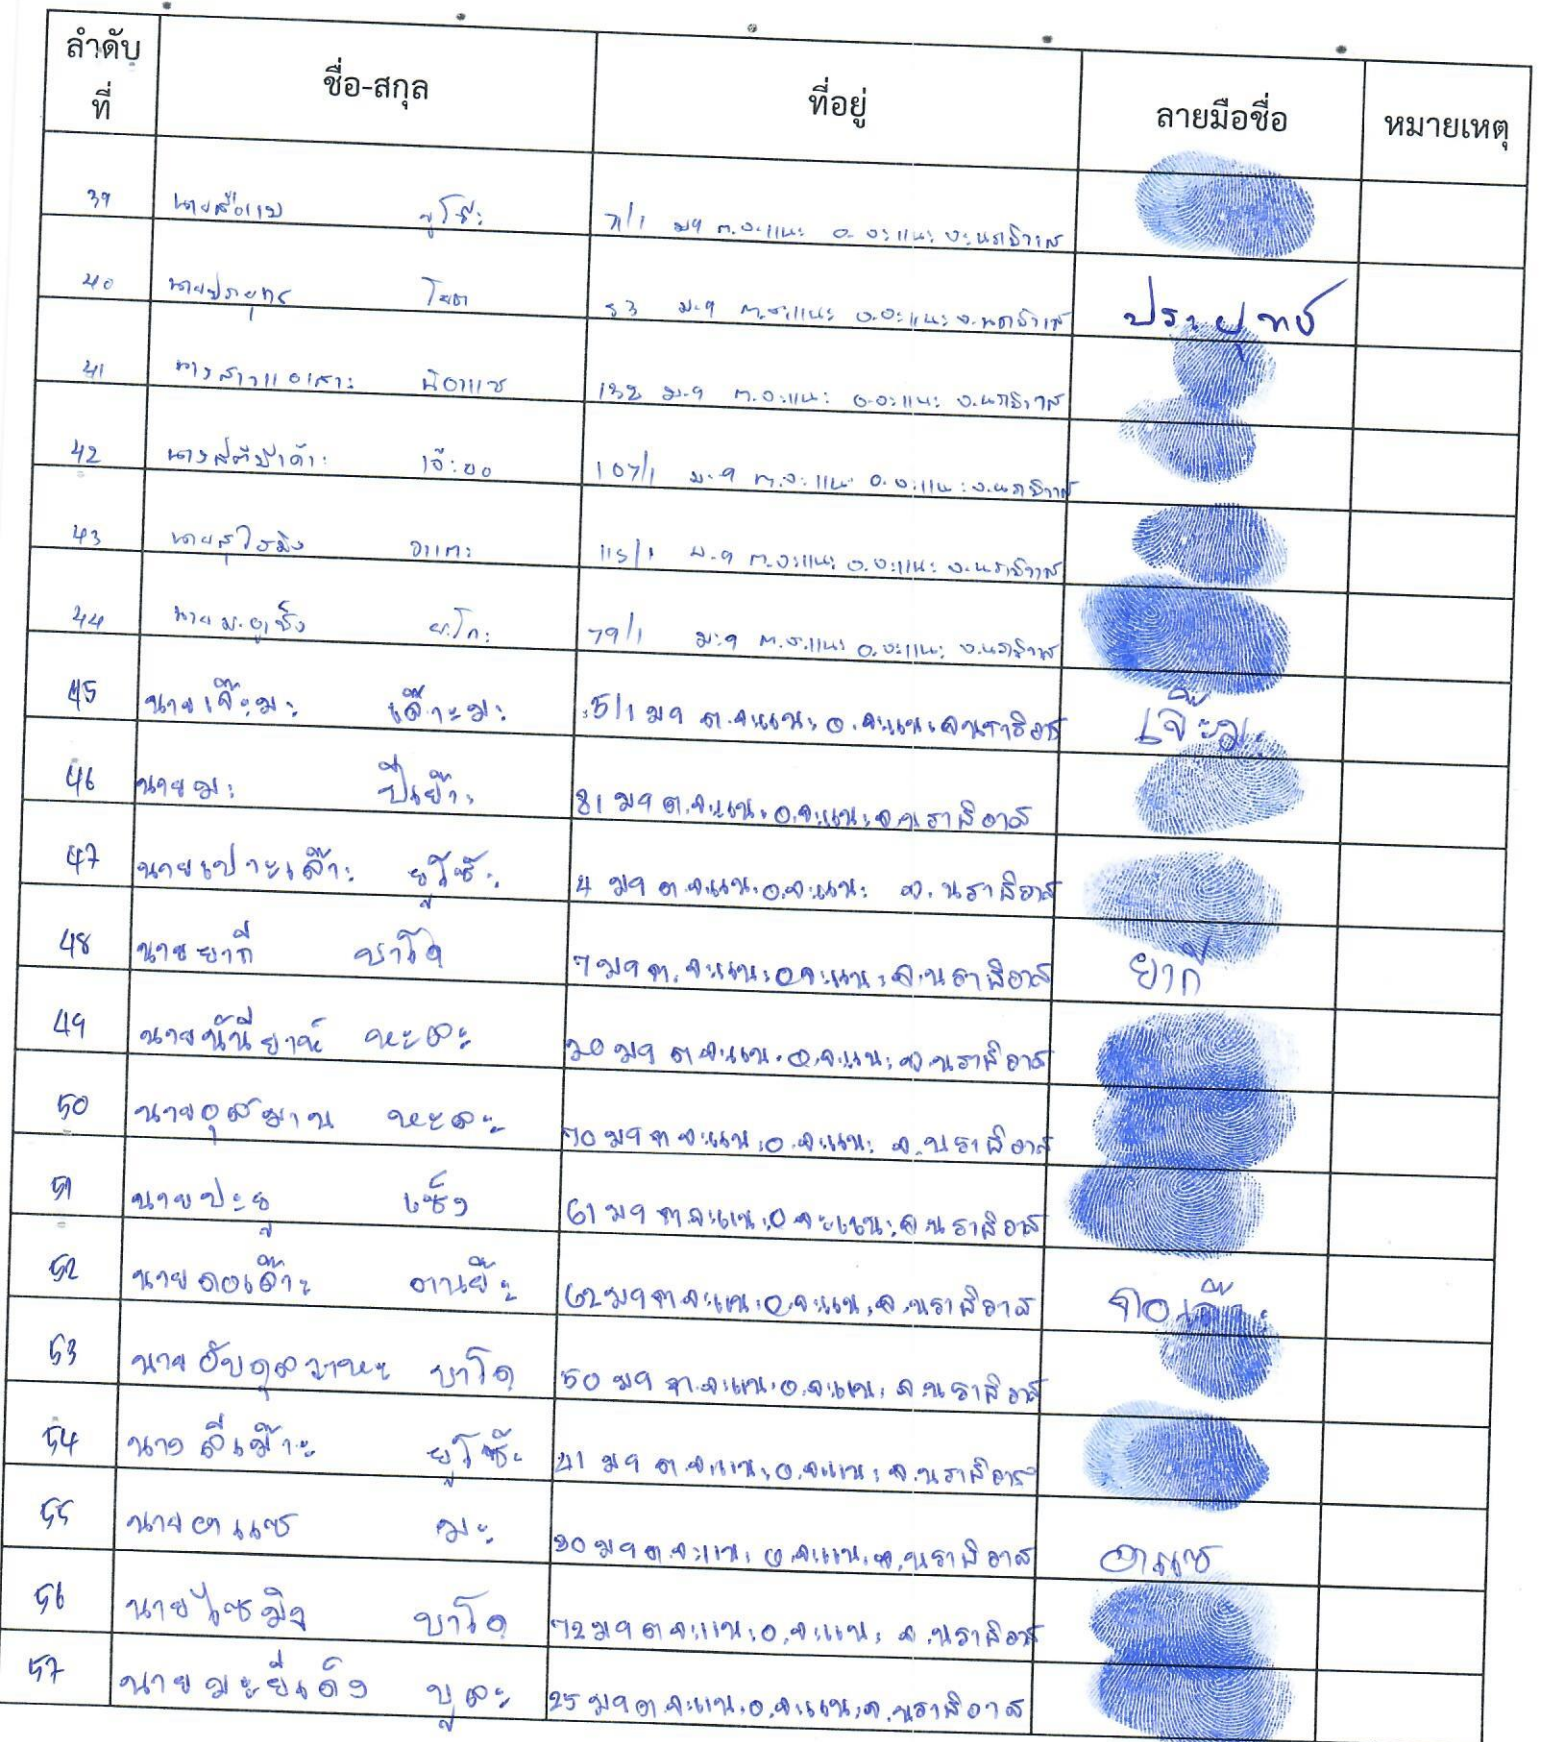 ลำดับที่ ชื่อ-สกุล ที่อยู่ ลายมือชื่อ หมายเหตุ
39 7/1 ม9 ต.จะแนะ อ.จะแนะ จ.นราธิวาส
40 นายประยุทธ 53 ม.9 ต.จะแนะ อ.จะแนะ จ.นราธิวาส ประยุทธ์
41 นางสาวแอเสาะ 132 ม.9 ต.จะแนะ อ.จะแนะ จ.นราธิวาส
42 เจ๊ะยอ 107/1 ม.9 ต.จะแนะ อ.จะแนะ จ.นราธิวาส
43 115/1 ม.9 ต.จะแนะ อ.จะแนะ จ.นราธิวาส
44 79/1 ม.9 ต.จะแนะ อ.จะแนะ จ.นราธิวาส
45 นายเจ๊ะมะ 5/1 ม9 ต.จะแนะ อ.จะแนะ จ.นราธิวาส เจ๊ะมะ
46 นายมะ 81 ม9 ต.จะแนะ อ.จะแนะ จ.นราธิวาส
47 ยูโซ๊ะ 4 ม9 ต.จะแนะ อ.จะแนะ จ.นราธิวาส
48 นายยากี บาโด 7 ม9 ต.จะแนะ อ.จะแนะ จ.นราธิวาส ยากี
49 หะละ 20 ม9 ต.จะแนะ อ.จะแนะ จ.นราธิวาส
50 นายอุสมาน หะละ 70 ม9 ต.จะแนะ อ.จะแนะ จ.นราธิวาส
51 นายปะยู เซ็ง 61 ม9 ต.จะแนะ อ.จะแนะ จ.นราธิวาส
52 62 ม9 ต.จะแนะ อ.จะแนะ จ.นราธิวาส
53 บาโด 50 ม9 ต.จะแนะ อ.จะแนะ จ.นราธิวาส
54 ยูโซ๊ะ ม9 ต.จะแนะ อ.จะแนะ จ.นราธิวาส
55 นายอาแซ มะ ม9 ต.จะแนะ อ.จะแนะ จ.นราธิวาส อาแซ
56 นายไซมิง บาโด 72 ม9 ต.จะแนะ อ.จะแนะ จ.นราธิวาส
57 นายมะยีเด็ง บูละ 25 ม9 ต.จะแนะ อ.จะแนะ จ.นราธิวาส